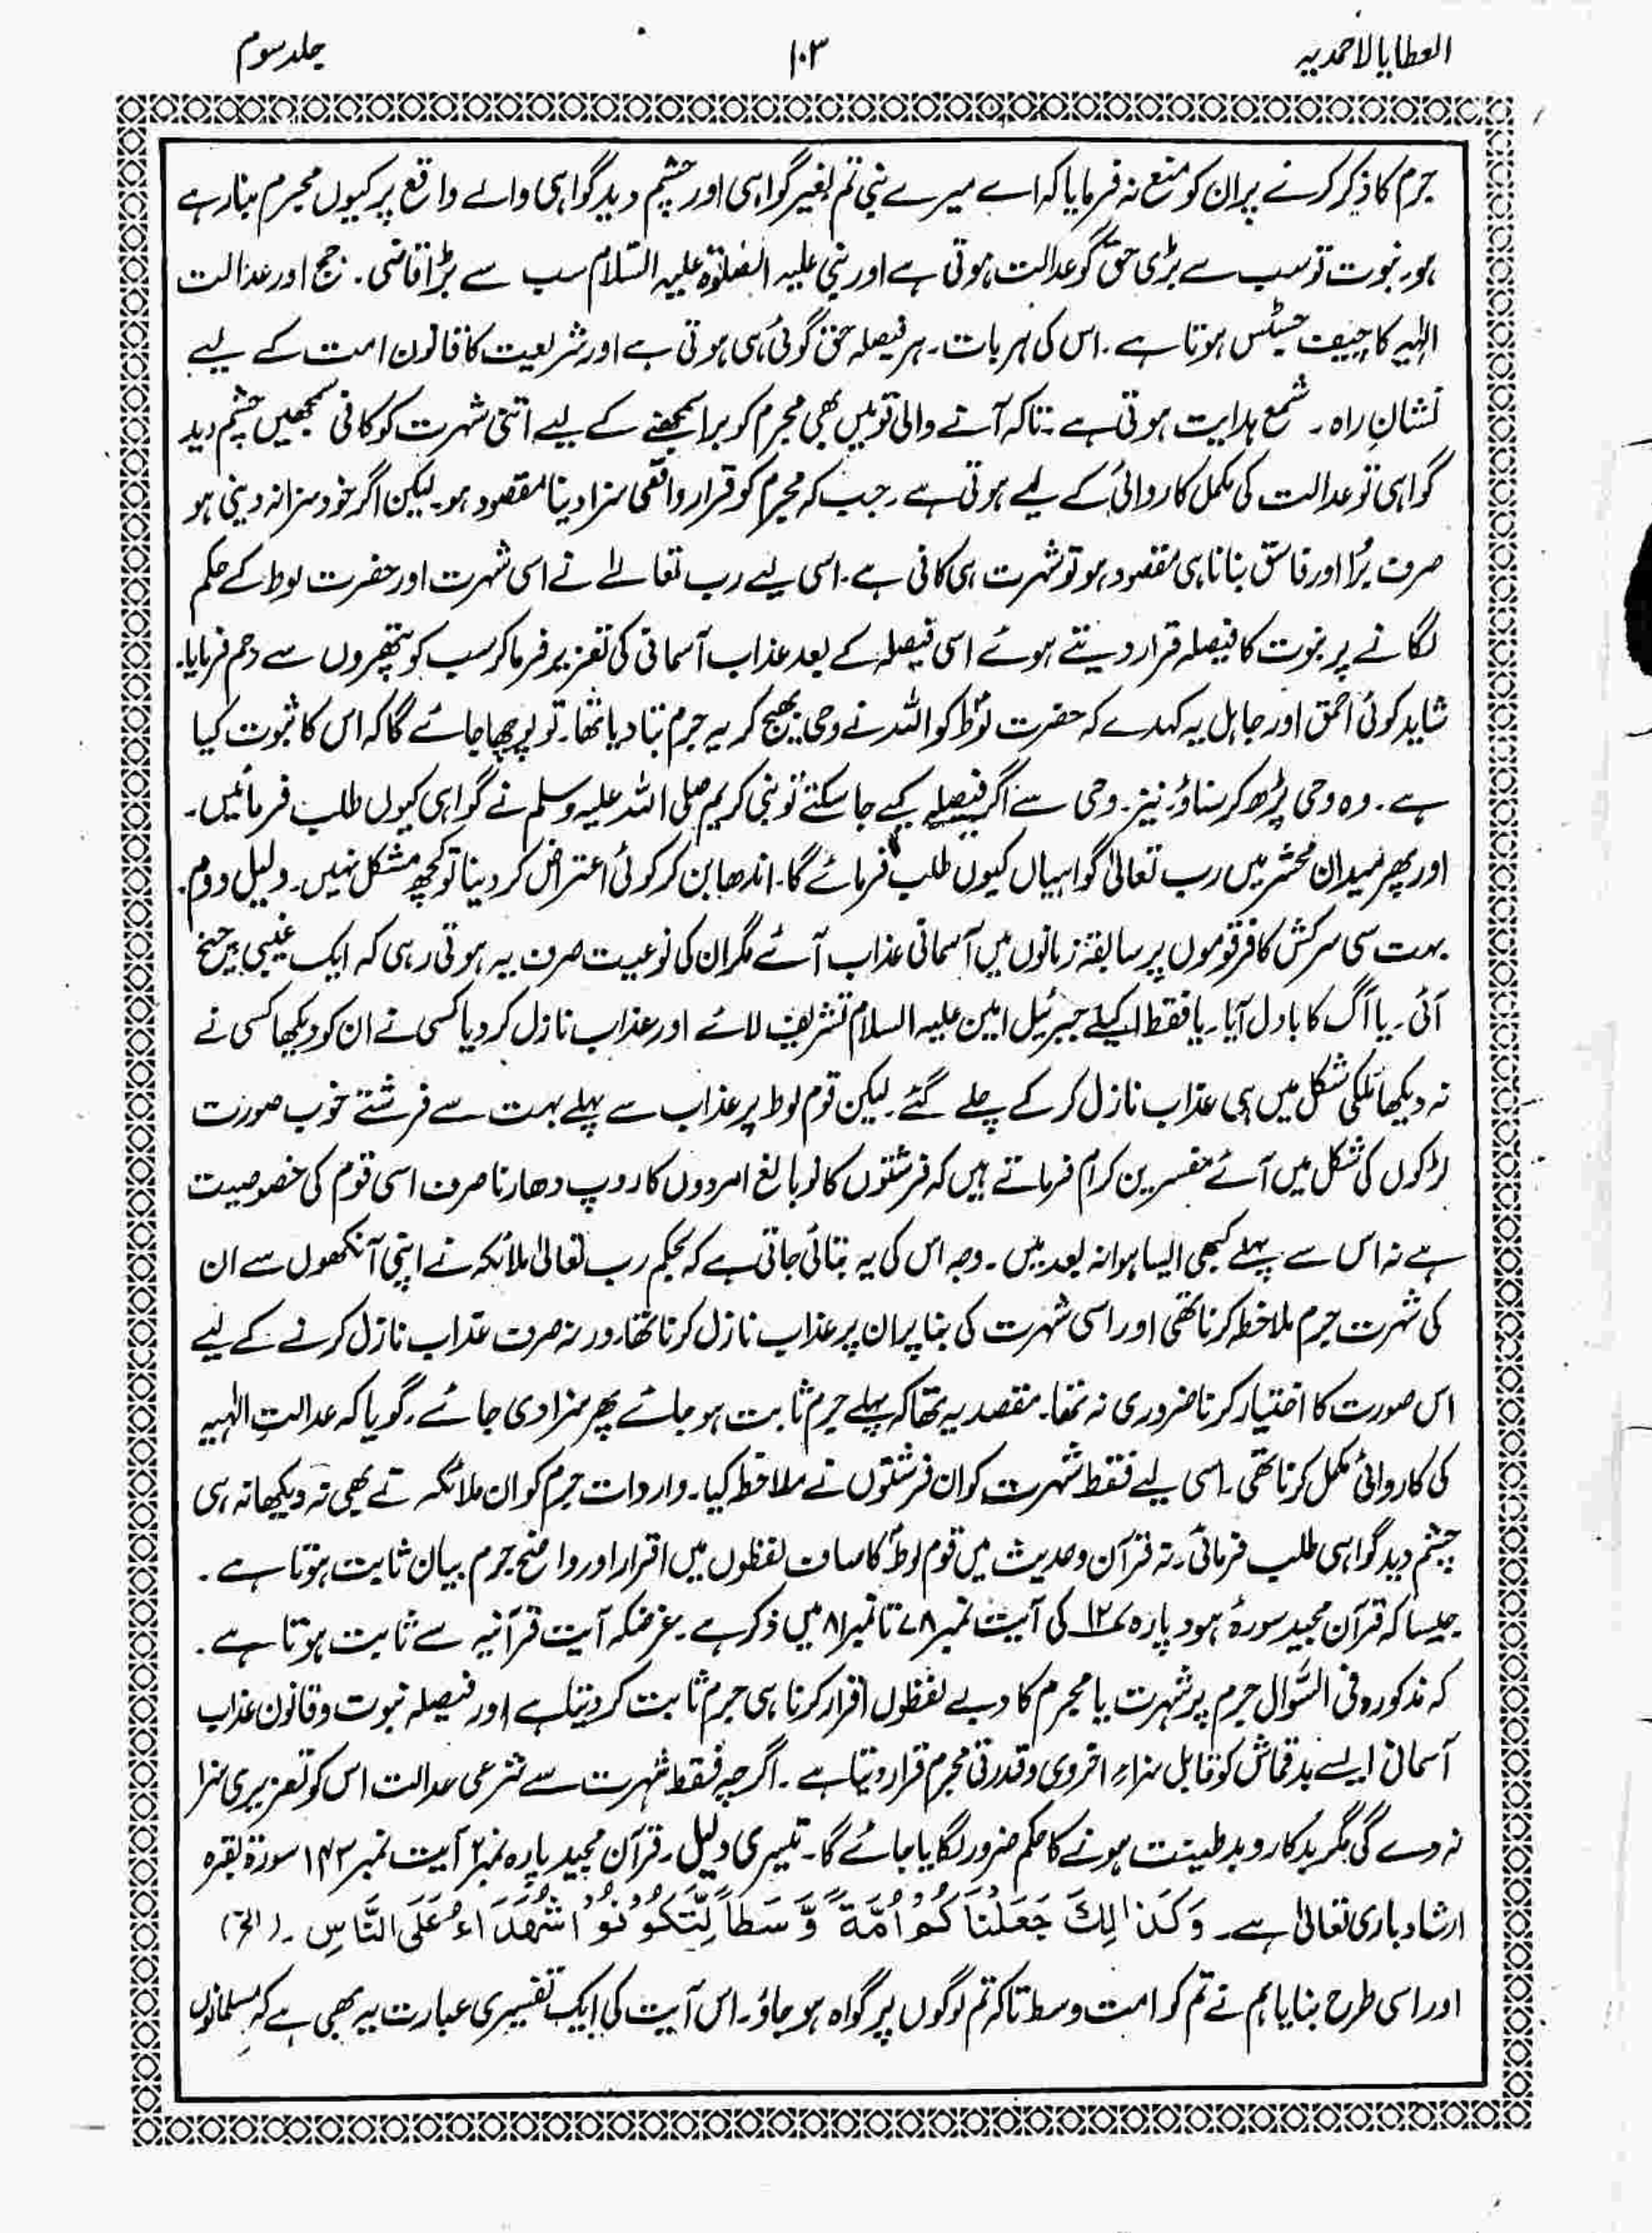 العطایا الاحمدیہ
۱۰۳
جلد سوم
جرم کا ذکر کرنے پر ان کو منع نہ فرمایا کہ اے میرے نبی تم بغیر گواہی اور چشم دید گواہی والے واقع پر کیوں مجرم بنا رہے
ہو۔ نبوت تو سب سے بڑی حق گو عدالت ہوتی ہے اور نبی علیہ الصلوٰۃ علیہ السّلام سب سے بڑا قاضی۔ جج اور عدالت
الٰہیہ کا چیف جسٹس ہوتا ہے۔ اس کی ہر بات۔ ہر فیصلہ حق گوئی ہی ہوتی ہے اور شریعت کا قانون امت کے لیے
نشانِ راہ۔ شمع ہدایت ہوتی ہے۔ تاکہ آنے والی قومیں بھی مجرم کو برا سمجھنے کے لیے اتنی شہرت کو کافی سمجھیں چشم دید
گواہی تو عدالت کی مکمل کاروائی کے لیے ہوتی ہے۔ جب کہ مجرم کو قرار واقعی سزا دینا مقصود ہو۔ لیکن اگر خود سزا نہ دینی ہو
صرف بُرا اور فاسق بنانا ہی مقصود ہو تو شہرت ہی کافی ہے۔ اسی لیے رب تعالےٰ نے اسی شہرت اور حضرت لوط کے حکم
لگانے پر نبوت کا فیصلہ قرار دیتے ہوئے اسی فیصلہ کے بعد عذاب آسمانی کی تعزیر فرما کر سب کو پتھروں سے رجم فرمایا۔
شاید کوئی احمق اور جاہل یہ کہدے کہ حضرت لوط کو اللہ نے وحی بھیج کر یہ جرم بتا دیا تھا۔ تو پوچھا جائے گا کہ اس کا ثبوت کیا
ہے۔ وہ وحی پڑھ کر سناؤ۔ نیز۔ وحی سے اگر فیصلے کیے جا سکتے تو نبی کریم صلی اللہ علیہ وسلم نے گواہی کیوں طلب فرمائیں۔
اور پھر میدان محشر میں رب تعالیٰ گواہیاں کیوں طلب فرمائے گا۔ اندھا بن کر کوئی اعتراض کر دینا تو کچھ مشکل نہیں۔ دلیل دوم۔
بہت سی سرکش کافر قوموں پر سابقہ زمانوں میں آسمانی عذاب آئے مگر ان کی نوعیت صرف یہ ہوتی رہی کہ ایک غیبی چیخ
آئی۔ یا آگ کا بادل آیا۔ یا فقط اکیلے جبرئیل امین علیہ السلام تشریف لائے اور عذاب نازل کر دیا کسی نے ان کو دیکھا کسی نے
نہ دیکھا ملکی شکل میں ہی عذاب نازل کر کے چلے گئے۔ لیکن قوم لوط پر عذاب سے پہلے بہت سے فرشتے خوب صورت
لڑکوں کی شکل میں آئے مفسرین کرام فرماتے ہیں کہ فرشتوں کا نو بالغ امردوں کا روپ دھارنا صرف اسی قوم کی خصوصیت
ہے نہ اس سے پہلے کبھی ایسا ہوا نہ بعد میں۔ وجہ اس کی یہ بتائی جاتی ہے کہ بحکم رب تعالیٰ ملائکہ نے اپنی آنکھوں سے ان
کی شہرت جرم ملاحظہ کرنا تھی اور اسی شہرت کی بنا پر ان پر عذاب نازل کرنا تھا۔ ورنہ صرف عذاب نازل کرنے کے لیے
اس صورت کا اختیار کرنا ضروری نہ تھا۔ مقصد یہ تھا کہ پہلے جرم ثابت ہو جائے پھر سزا دی جائے۔ گویا کہ عدالتِ الٰہیہ
کی کاروائی مکمل کرنا تھی۔ اسی لیے فقط شہرت کو ان فرشتوں نے ملاحظہ کیا۔ واردات جرم کو ان ملائکہ نے بھی نہ دیکھا نہ ہی
چشم دید گواہی طلب فرمائی۔ نہ قرآن و حدیث میں قوم لوط کا صاف لفظوں میں اقرار اور واضح جرم بیان ثابت ہوتا ہے۔
جیسا کہ قرآن مجید سورۂ ہود پارہ ۱۲ کی آیت نمبر ۷۸ تا نمبر ۸۱ میں ذکر ہے۔ غرضکہ آیت قرآنیہ سے ثابت ہوتا ہے۔
کہ مذکورہ فی السّوال جرم پر شہرت یا مجرم کا دبے لفظوں اقرار کرنا ہی جرم ثابت کر دیتا ہے اور فیصلہ نبوت و قانون عذاب
آسمانی ایسے بد قماش کو قابل سزاءِ اخروی و قدرتی مجرم قرار دیتا ہے۔ اگرچہ فقط شہرت سے شرعی عدالت اس کو تعزیری سزا
نہ دے گی مگر بدکار و بد طینت ہونے کا حکم ضرور لگایا جائے گا۔ تیسری دلیل۔ قرآن مجید پارہ نمبر ۲ آیت نمبر ۱۴۳ سورۃ بقرہ
ارشاد باری تعالیٰ ہے۔ وَکَذٰلِكَ جَعَلْنَاکُمْ اُمَّةً وَّسَطاً لِّتَکُوْنُوْا شُھَدَاءَ عَلَی النَّاسِ۔ (الخ)
اور اسی طرح بنایا ہم نے تم کو امت وسط تاکہ تم لوگوں پر گواہ ہو جاؤ۔ اس آیت کی ایک تفسیری عبارت یہ بھی ہے کہ مسلمانوں